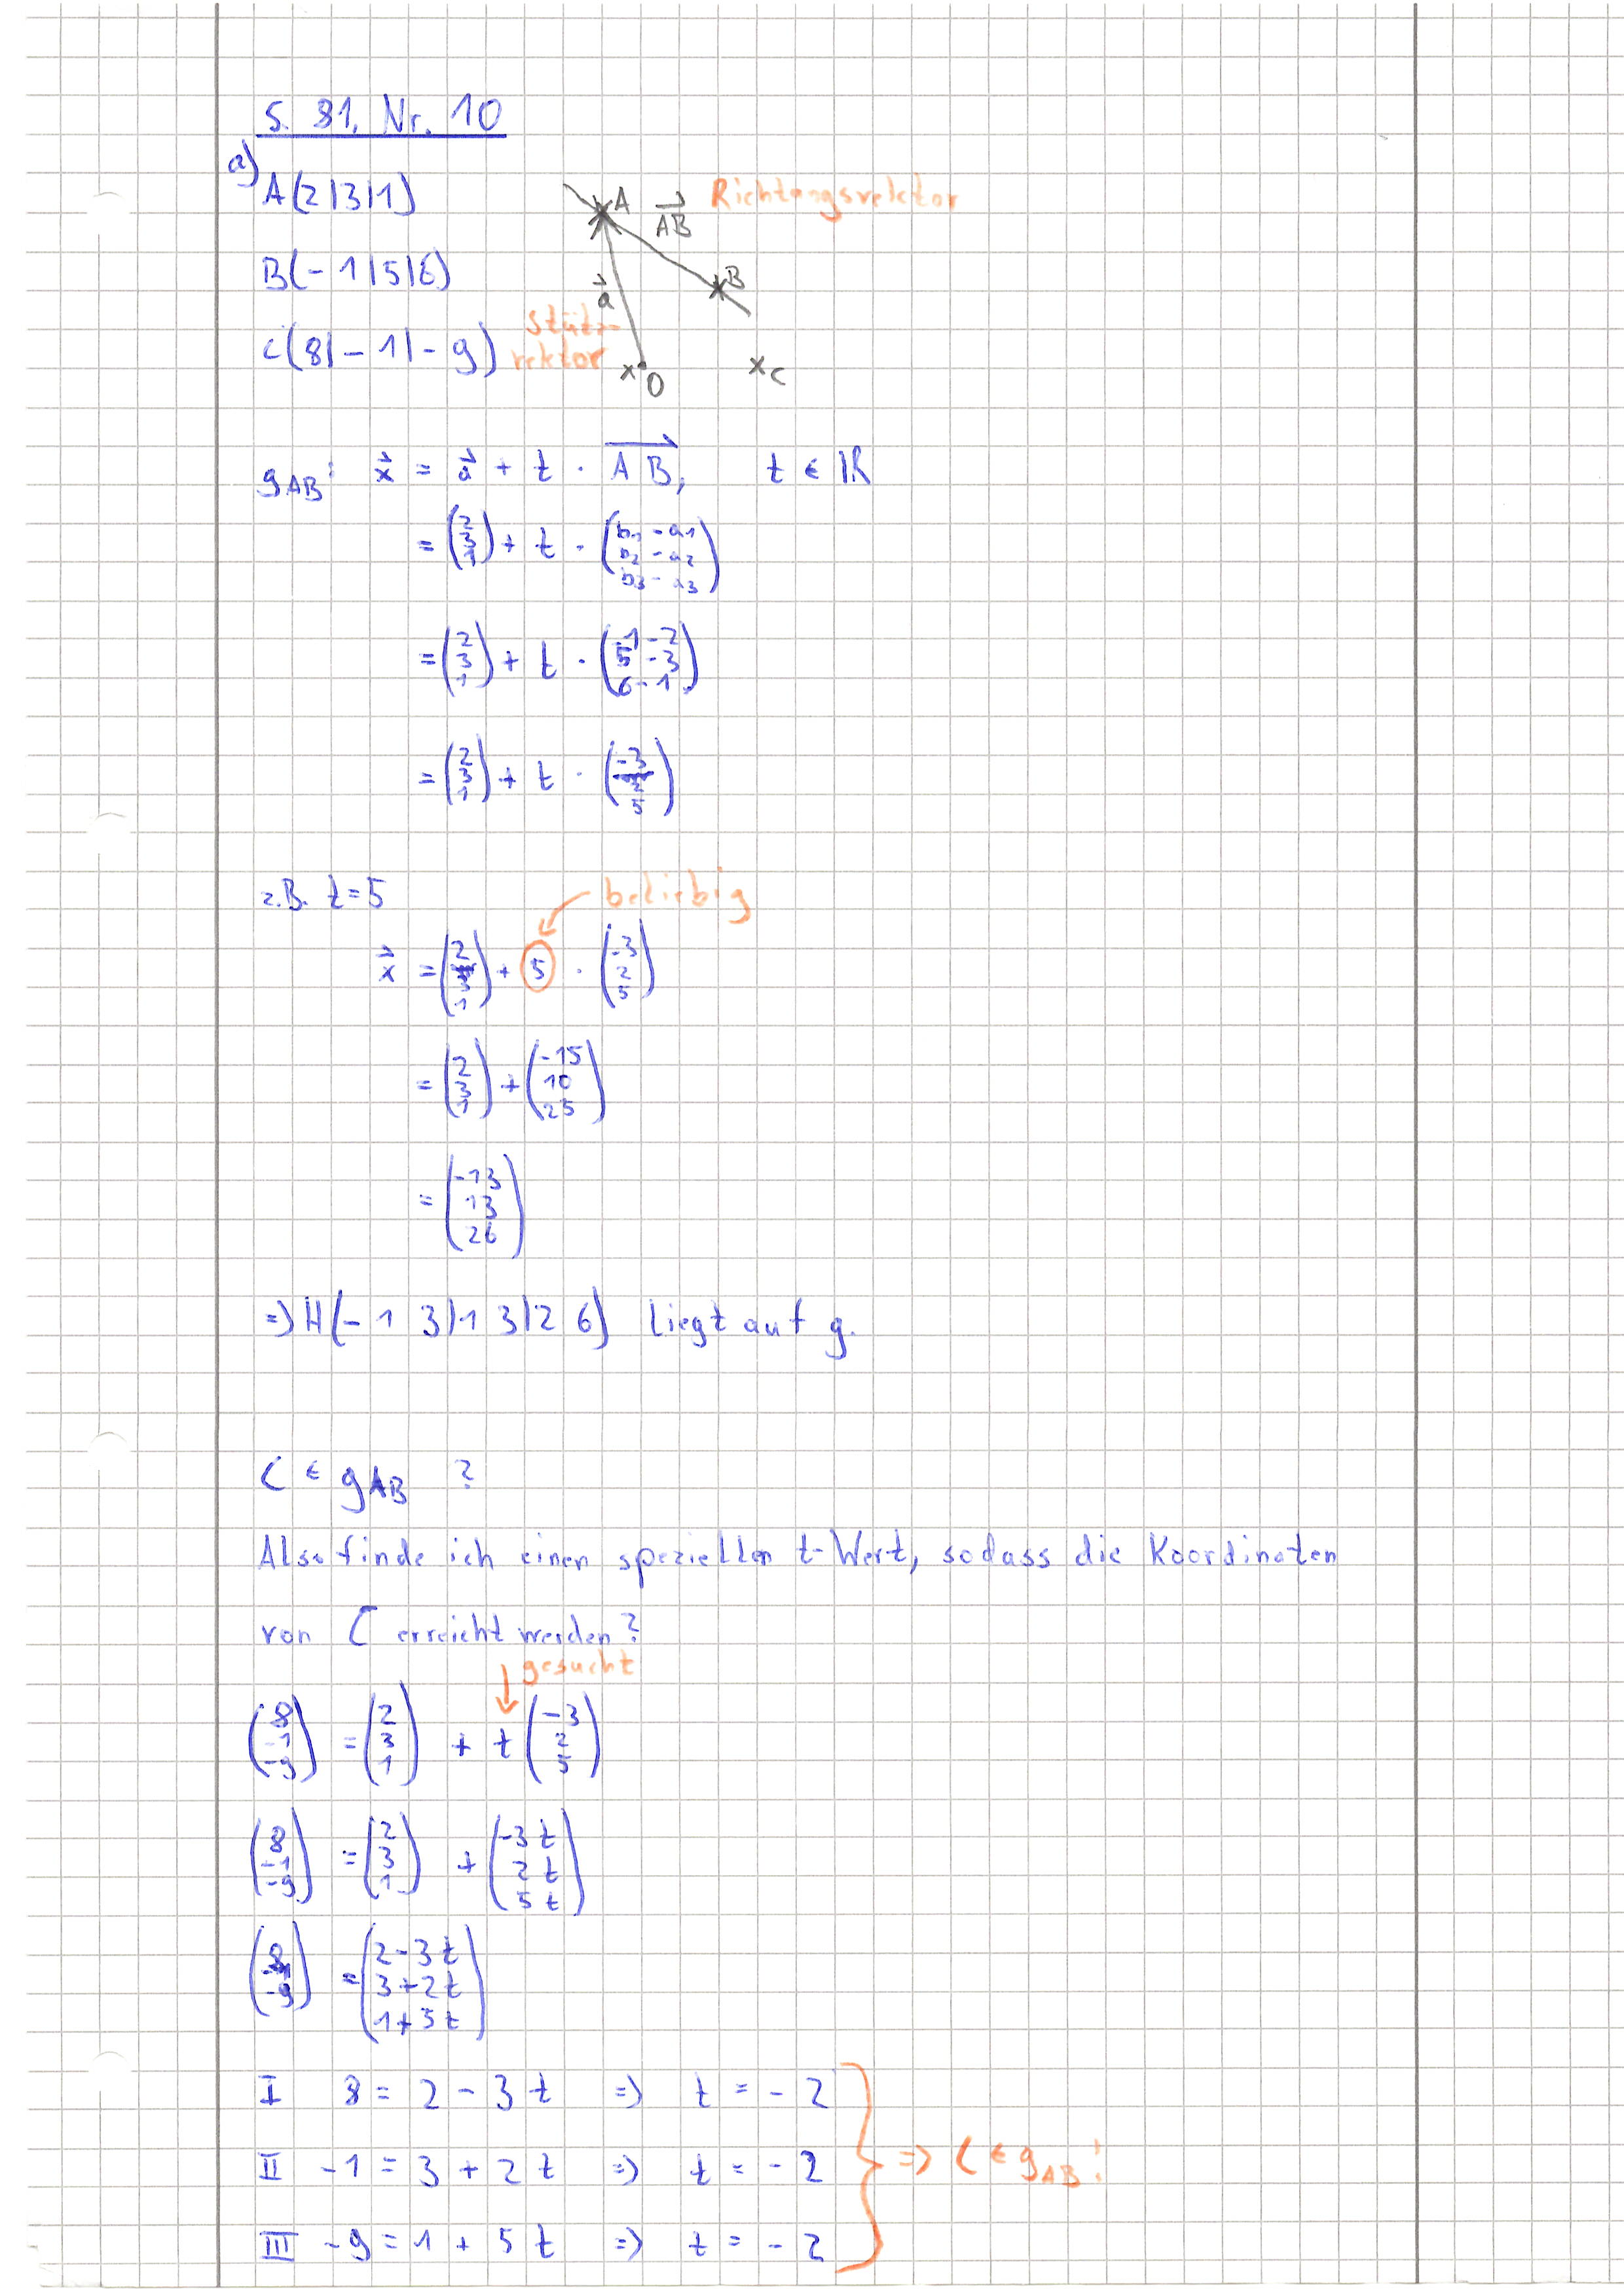 S. 81, Nr. 10
a)
A(2|3|1)
B(-1|5|6)
C(8|-1|-9)
A
AB Richtungsvektor
B
a
Stütz-
vektor
x O
x C
g_AB: x = a + t · AB, t ∈ ℝ
= (2 3 1) + t · (b₁ - a₁ b₂ - a₂ b₃ - a₃)
= (2 3 1) + t · (-1 - 2 5 - 3 6 - 1)
= (2 3 1) + t · (-3 2 5)
z.B. t = 5
beliebig
x = (2 3 1) + 5 · (-3 2 5)
= (2 3 1) + (-15 10 25)
= (-13 13 26)
=> H(-13|13|26) liegt auf g.
C ∈ g_AB ?
Also finde ich einen speziellen t-Wert, sodass die Koordinaten
von C erreicht werden?
gesucht
(8 -1 -9) = (2 3 1) + t (-3 2 5)
(8 -1 -9) = (2 3 1) + (-3t 2t 5t)
(8 -1 -9) = (2 - 3t 3 + 2t 1 + 5t)
I 8 = 2 - 3t => t = -2
II -1 = 3 + 2t => t = -2
=> C ∈ g_AB!
III -9 = 1 + 5t => t = -2